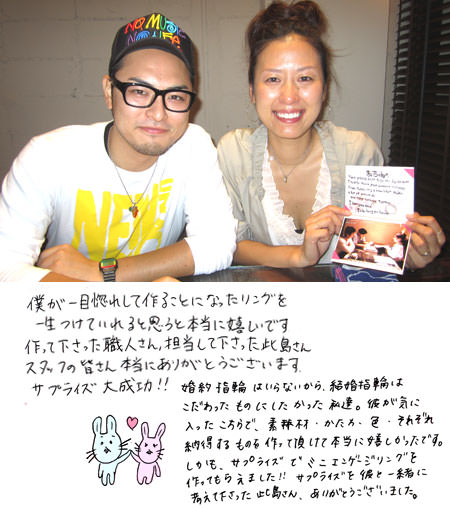 NO MUSIC
NO LIFE
僕が一目惚れして作ることになったリングを
一生つけていれると思うと本当に嬉しいです
作って下さった職人さん、担当して下さった此島さん
スタッフの皆さん本当にありがとうございます
サプライズ大成功!!
婚約指輪はいらないから、結婚指輪は
こだわったものにしたかった私達。彼が気に
入ったこちらで、素材・かたち・色・それぞれ
納得するものを作って頂けて本当に嬉しかったです。
しかも、サプライズでミニエンゲージリングを
作ってもらえました!! サプライズを彼と一緒に
考えて下さった此島さん、ありがとうございました。